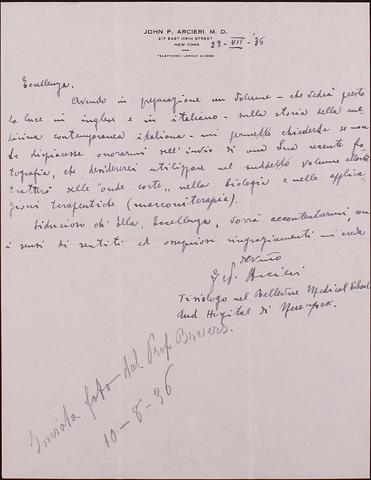 JOHN P. ARCIERI, M. D.
217 EAST 116TH STREET
NEW YORK
TELEPHONE: LEHIGH
28 - VII - '36
Eccellenza,
Avendo in preparazione un volume - che vedrà presto
la luce in inglese e in italiano - sulla storia della me
dicina contemporanea italiana - mi permetto chiederle se non
Le dispiacesse onorarmi dell'invio di una Sua recente fo
tografia, che desidererei utilizzare nel suddetto volume
tratterò delle "onde corte" nella biologia e nelle applica
zioni terapeutiche (marconiterapia).
Fiducioso ch'Ella, Eccellenza, vorrà accontentarmi con
i sensi di sentiti ed ossequiosi ringraziamenti mi creda
J. P. Arcieri
Fisiologo nel Bellevue Medical School
and Hospital di New-York.
Inviata foto dal Prof.
10-8-36